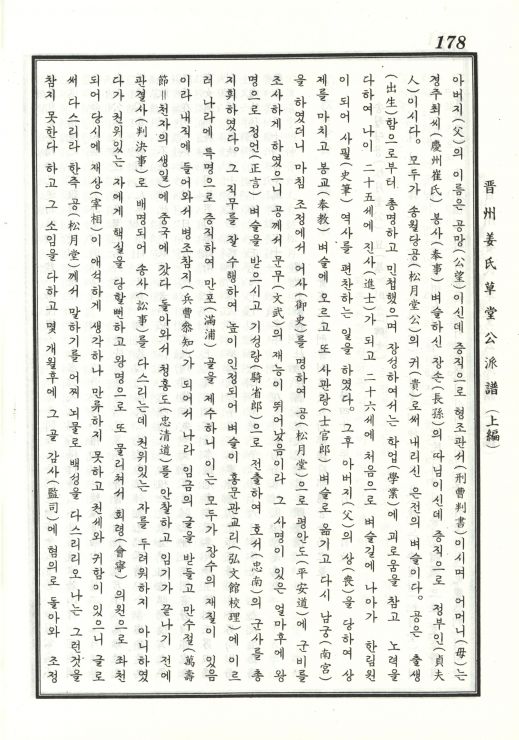 178
晋州姜氏草堂公派譜 (上編)
아버지(父)의 이름은 공망(公望)이신데 증직으로 형조판서(刑曹判書)이시며 어머니(母)는
경주최씨(慶州崔氏) 봉사(奉事) 벼슬하신 장손(長孫)의 따님이신데 증직으로 정부인(貞夫
人)이시다. 모두가 송월당공(松月堂公)의 귀(貴)로써 내리신 은전의 벼슬이다. 공은 출생
(出生)함으로부터 총명하고 민첩했으며 장성하여서는 학업(學業)에 괴로움을 참고 노력을
다하여 나이 二十五세에 진사(進士)가 되고 二十六세에 처음으로 벼슬길에 나아가 한림원
이 되어 사필(史筆) 역사를 편찬하는 일을 하였다. 그후 아버지(父)의 상(喪)을 당하여 상
제를 마치고 봉교(奉敎) 벼슬에 오르고 또 사관랑(士官郎) 벼슬로 옮기고 다시 남궁(南宮)
을 하였더니 마침 조정에서 어사(御史)를 명하여 공(松月堂)으로 평안도(平安道)에 군비를
조사하게 하였으니 공께서 문무(文武)의 재능이 뛰어났음이라 그 사명이 있은 얼마후에 왕
명으로 정언(正言) 벼슬을 받으시고 기성랑(騎省郎)으로 전출하여 호서(忠南)의 군사를 총
지휘하였다. 그 직무를 잘 수행하여 높이 인정되어 벼슬이 홍문관교리(弘文館校理)에 이르
러 나라에 특명으로 증직하여 만포(滿浦) 골을 제수하니 이는 모두가 장수의 재질이 있음
이라 내직에 들어와서 병조참지(兵曹叅知)가 되어서 나라 임금의 글을 받들고 만수절(萬壽
節=천자의 생일)에 중국에 갔다 돌아와서 청홍도(忠淸道)를 안찰하고 임기가 끝나기 전에
판결사(判決事)로 배명되어 송사(訟事)를 다스리는데 권위있는 자를 두려워하지 아니하였
다가 권위있는 자에게 핵실을 당할뻔하고 왕명으로 또 물리쳐서 회령(會寧)의 원으로 좌천
되어 당시에 재상(宰相)이 애석하게 생각하나 만류하지 못하고 권세와 귀함이 있으니 글로
써 다스리라 한즉 공(松月堂)께서 말하기를 어찌 뇌물로 백성을 다스리리오 나는 그런것을
참지 못한다 하고 그 소임을 다하고 몇개월후에 그 골 감사(監司)에 혐의로 돌아와 조정